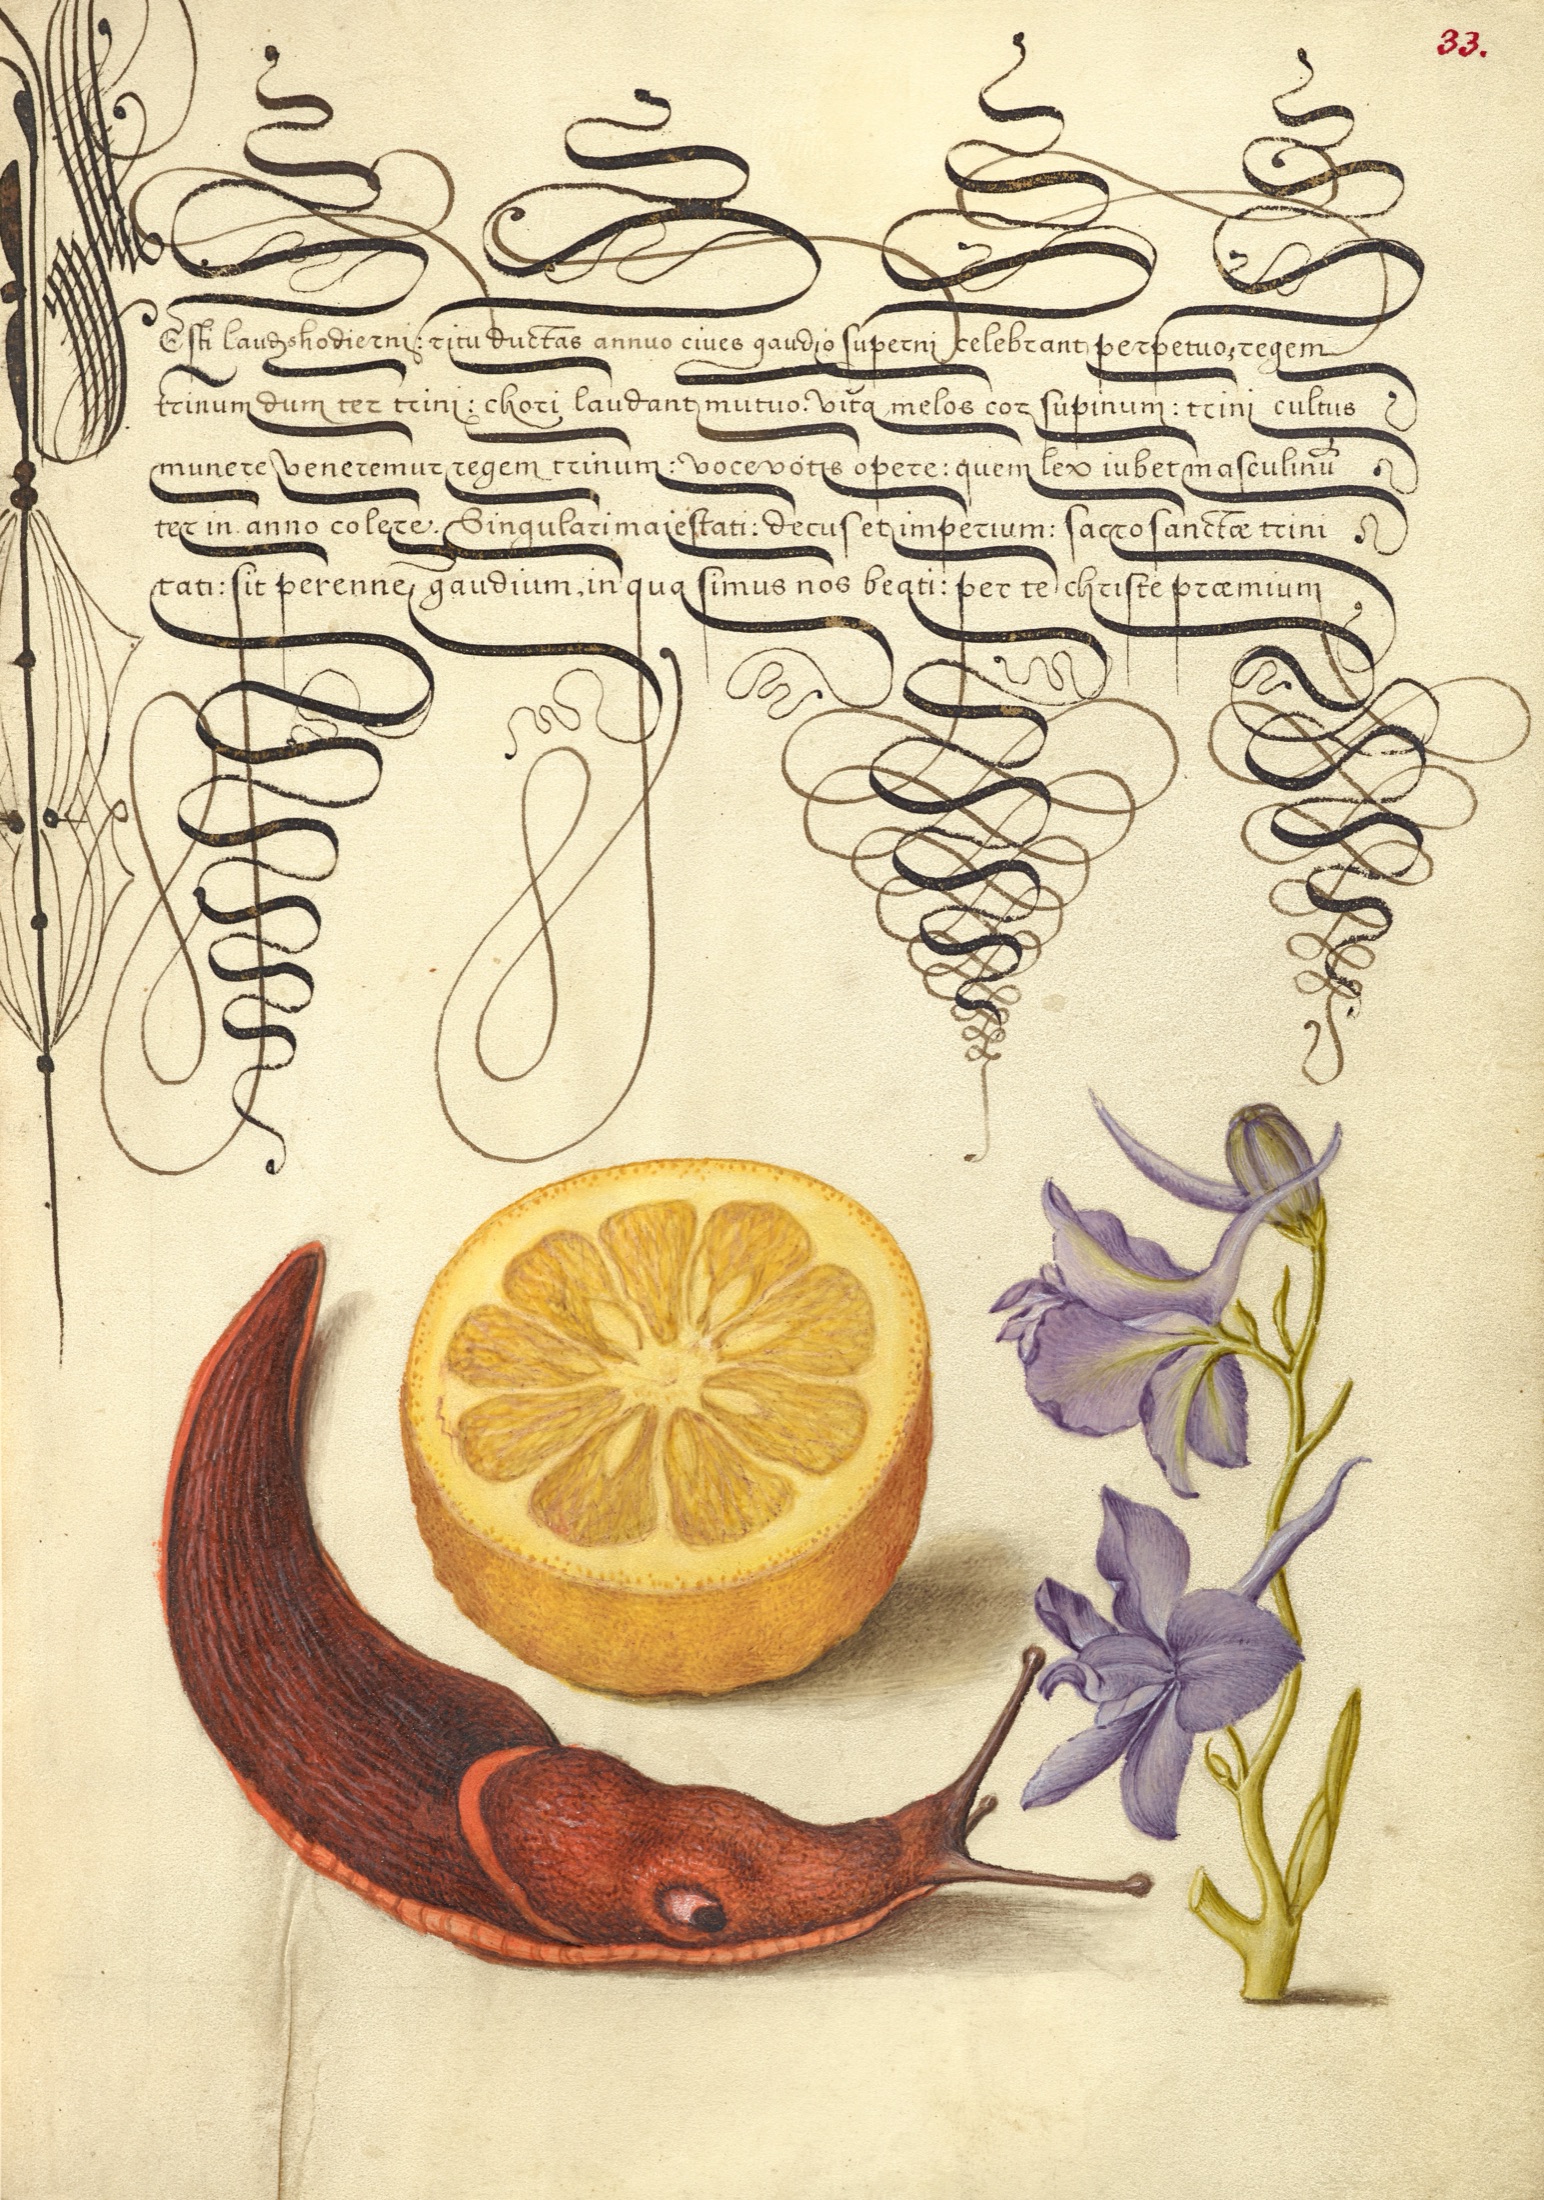 33.
Esti laudis hodierni: ritu ductas annuo ciues gaudio superni celebrant perpetuo, regem
trinum dum ter trini: chori laudant mutuo. Vita melos cor supinum: trini cultus
munere veneremur regem trinum: voce votis opere: quem lex iubet masculinū
ter in anno colere. Singulari maiestati: decus et imperium: sacrosanctæ trini
tati: sit perenne gaudium, in qua simus nos beati: per te christe præmium